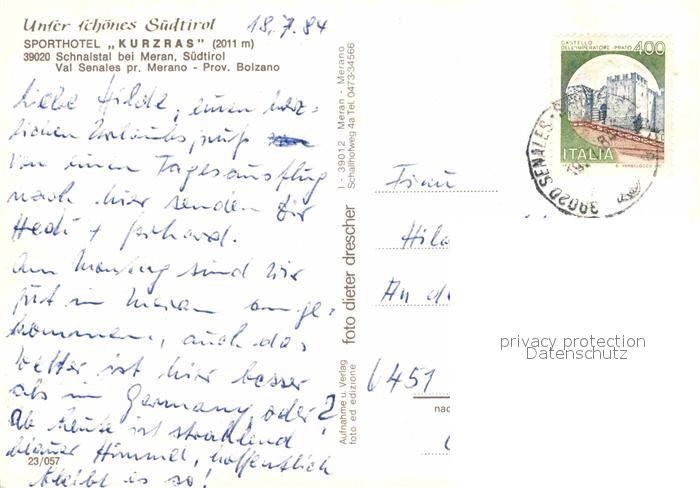 Unser schönes Südtirol
18.7.84
SPORTHOTEL „KURZRAS" (2011 m)
39020 Schnalstal bei Meran, Südtirol
Val Senales pr. Merano - Prov. Bolzano
Liebe Hilde, einen herz-
lichen Urlaubsgruß
von einem Tagesausflug
nach hier senden Dir
Hedi + Gerhard.
Am Montag sind wir
gut in Meran ange-
kommen, auch das
Wetter ist hier besser
als in Germany, oder?
Ab heute ist strahlend
blauer Himmel, hoffentlich
bleibt es so!
23/057
I - 39012 Meran - Merano
Schallhofweg 4a Tel. 0473-34566
foto dieter drescher
Aufnahme u. Verlag
foto ed edizione
CASTELLO
DELL'IMPERATORE - PRATO
400
ITALIA
39020 SENALES
Frau
Hil
An d
6451
nac
privacy protection
Datenschutz